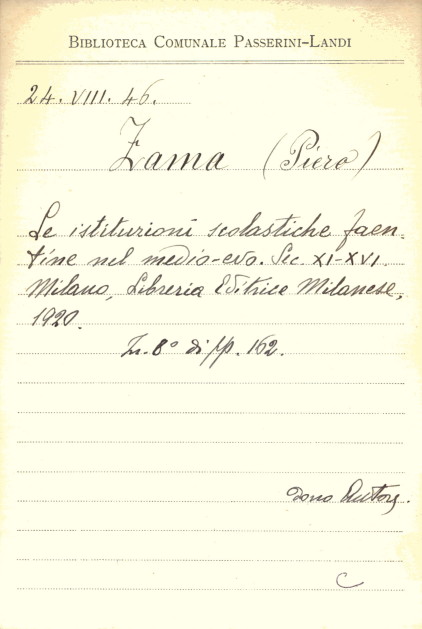 BIBLIOTECA COMUNALE PASSERINI-LANDI
24. VIII. 46.
Zama (Piero)
Le istituzioni scolastiche faen-
tine nel medio-evo. Sec. XI-XVI.
Milano, Libreria Editrice Milanese,
1920.
In. 8° di pp. 162.
dono Autore.
C